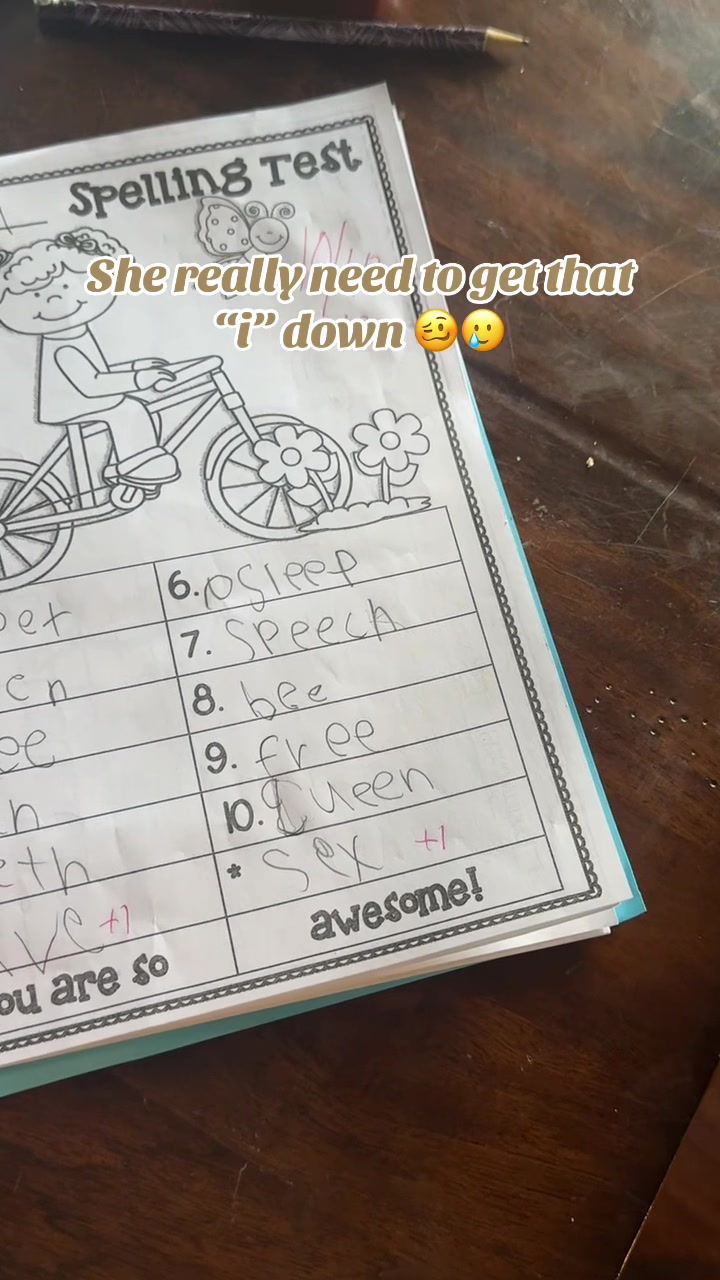 Spelling Test
She really need to get that
“i” down 🥴🥲
6. asleep
7. speech
8. bee
9. free
10. Queen
en
ee
eth
* sex +1
+1
ou are so
awesome!